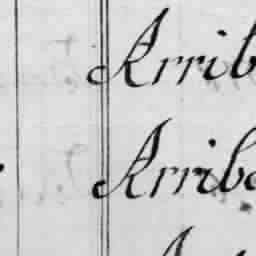 Arrib
Arriba